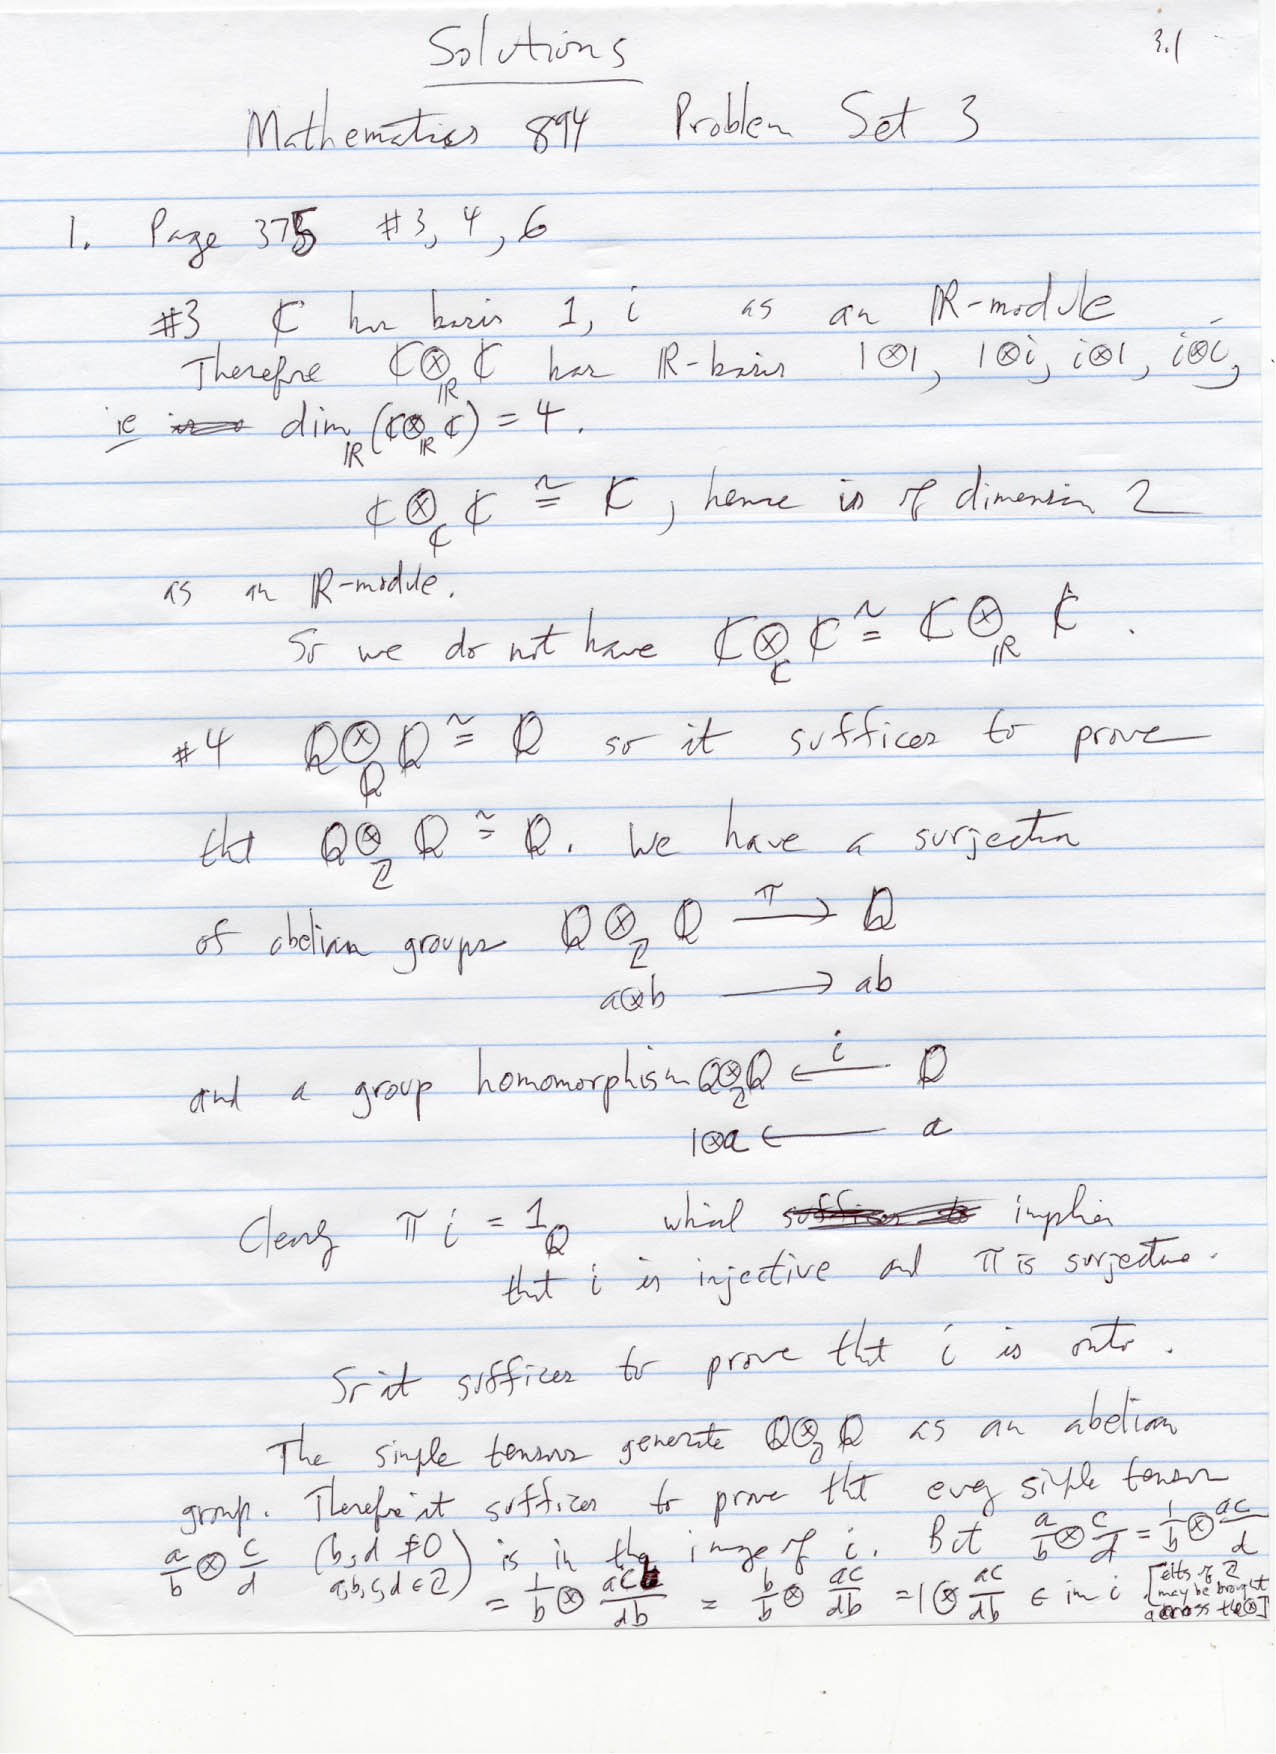 Solutions 3.1
Mathematics 894 Problem Set 3
1. Page 375 #3, 4, 6
#3 ℂ has basis 1, i as an ℝ-module
Therefore ℂ⊗_ℝ ℂ has ℝ-basis 1⊗1, 1⊗i, i⊗1, i⊗i,
ie dim_ℝ(ℂ⊗_ℝ ℂ) = 4.
ℂ⊗_ℂ ℂ ≅ ℂ, hence is of dimension 2
as an ℝ-module.
So we do not have ℂ⊗_ℂ ℂ ≅ ℂ⊗_ℝ ℂ.
#4 ℚ⊗_ℚ ℚ ≅ ℚ so it suffices to prove
that ℚ⊗_ℤ ℚ ≅ ℚ. We have a surjection
of abelian groups ℚ⊗_ℤ ℚ —π→ ℚ
a⊗b ⟶ ab
and a group homomorphism ℚ⊗_ℤ ℚ ←i— ℚ
1⊗a ⟵ a
Clearly π i = 1_ℚ which implies
that i is injective and π is surjective.
So it suffices to prove that i is onto.
The simple tensors generate ℚ⊗_ℤ ℚ as an abelian
group. Therefore it suffices to prove that every simple tensor
a/b ⊗ c/d (b,d ≠ 0 a,b,c,d ∈ ℤ) is in the image of i. But a/b ⊗ c/d = 1/b ⊗ ac/d
= 1/b ⊗ acb/db = b/b ⊗ ac/db = 1⊗ ac/db ∈ im i [elts of ℤ may be brought across the ⊗]